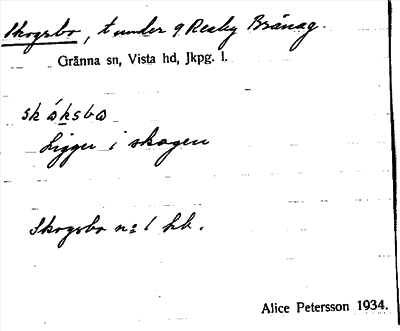 Skogsbo, t under 9 Reaby Brånag.
Gränna sn, Vista hd, Jkpg. l.
skɷ́ksbɷ
Ligger i skogen
Skogsbo n:o 1 hb.
Alice Petersson 1934.